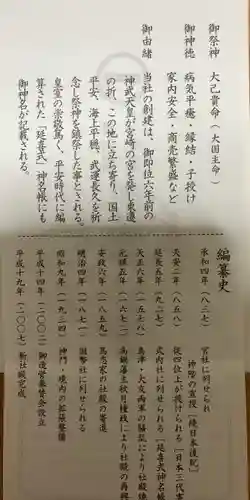 御祭神 大己貴命(大国主命)
御神徳 病気平癒・縁結・子授け
家内安全・商売繁盛など
御由緒 当社の創建は、御即位六年前の
神武天皇が宮崎の宮を発し東遷
の折、この地に立ち寄り、国土
平安、海上平穏、武運長久を祈
念し祭神を鎮祭した事とされる。
皇室の崇敬篤く、平安時代に編
算された「延喜式」神名帳にも
御神名が記載される。
編纂史
承和四年(八三七) 官社に列せられ
神階の宣授「続日本後紀」
天安二年(八五八) 従四位上が授けられる「日本三代
延長五年(九二七) 式内社に列せられる「延喜式神名帳
天正六年(一五七八) 島津・大友両軍の騒乱により社殿
元禄五年(一六九二) 高鍋藩主秋月種政により社殿の再興
安政六年(一八五九) 篤志家の社殿の寄進
明治四年(一八七一) 国幣社に列せられる
昭和九年(一九三四) 神門・境内の拡張整備
平成十四年(二〇〇二) 御造営奉賛会設立
平成十九年(二〇〇七) 新社殿完成